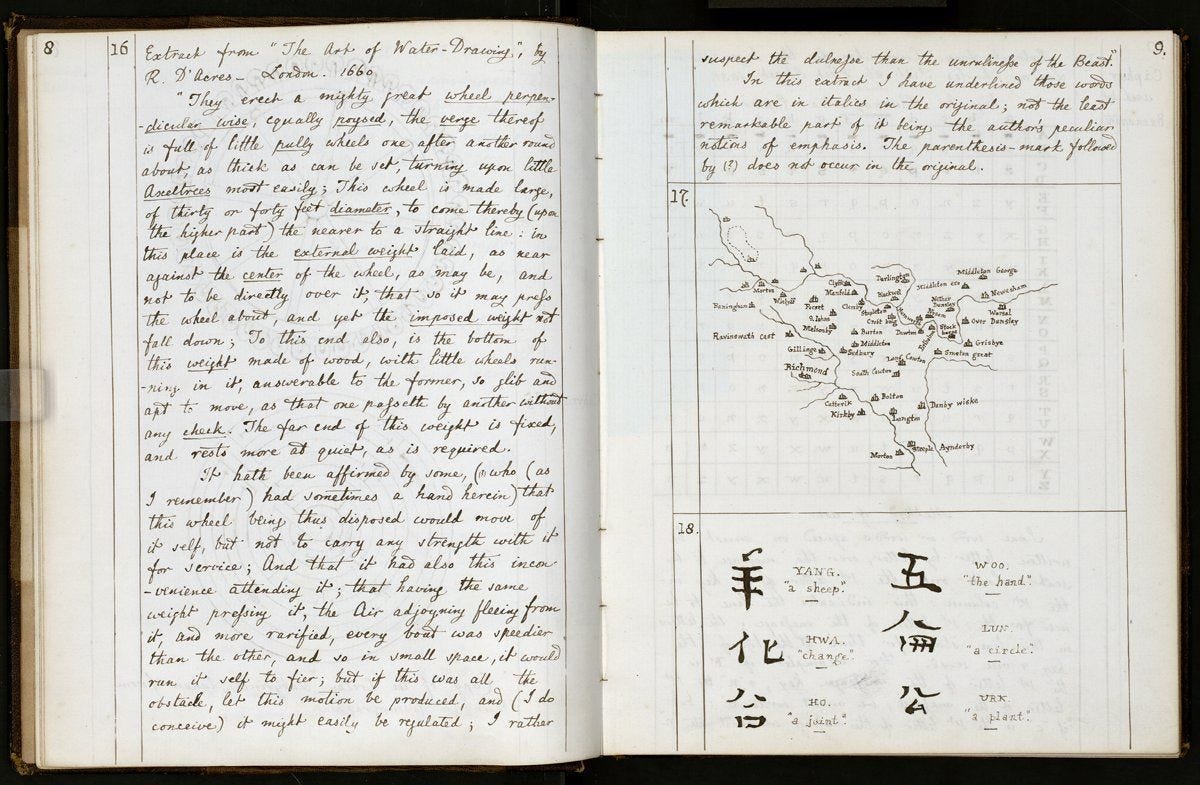 8
16
Extract from "The Art of Water-Drawing", by
R. D'Acres — London. 1660
"They erect a mighty great wheel perpen-
-dicular wise, equally poysed, the verge thereof
is full of little pully wheels one after another round
about, as thick as can be set, turning upon little
Axeltrees most easily; This wheel is made large,
of thirty or forty feet diameter, to come thereby (upon
the higher part) the nearer to a straight line: in
this place is the external weight laid, as near
against the center of the wheel, as may be, and
not to be directly over it, that so it may press
the wheel about, and yet the imposed weight not
fall down; To this end also, is the bottom of
this weight made of wood, with little wheels run-
-ning in it, answerable to the former, so glib and
apt to move, as that one passeth by another without
any check. The far end of this weight is fixed,
and rests more at quiet, as is required.
It hath been affirmed by some, (?) who (as
I remember) had sometimes a hand herein) that
this wheel being thus disposed would move of
it self, but not to carry any strength with it
for service; And that it had also this incon
-venience attending it; that having the same
weight pressing it, the Air adjoyning fleeing from
it, and more rarified, every bout was speedier
than the other, and so in small space, it would
run it self to fier; but if this was all the
obstacle, let this motion be produced, and (I do
conceive) it might easily be regulated; I rather
9.
suspect the dulnesse than the unrulinesse of the Beast."
In this extract I have underlined those words
which are in italics in the original; not the least
remarkable part of it being the author's peculiar
notions of emphasis. The parenthesis-mark followed
by (?) does not occur in the original.
17.
Middleton George
Darlington
Middleton
Newsham
Cliffe
Manfeld
Blackwell
Morton
Nether Dunsley
Barningham
Forcet
Stapleton
Worsal
Croft
Over Dunsley
S. Johns
Melsonby
Barton
Ravinswath cast
Middleton
Grisbye
Gillinge
Sedbury
Smeton great
Long Couton
Richmond
South Couton
Catterik
Bolton
Danby wiske
Kirkby
Langton
Morton
Steeple
Aynderby
18.
羊
YANG.
"a sheep".
五
WOO.
"the hand".
化
HWA.
"change".
侖
LUN.
"a circle".
合
HO.
"a joint".
公
URK.
"a plant".